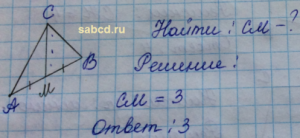 C
sabcd.ru
Найти: СМ - ?
B
Решение:
A
M
СМ = 3
Ответ: 3